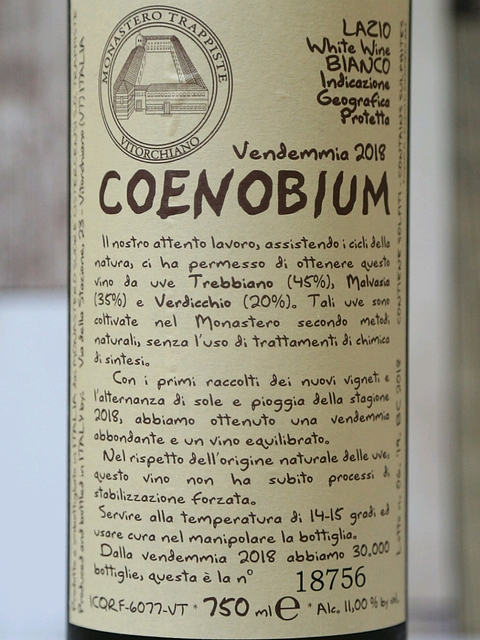 MONASTERO TRAPPISTE
VITORCHIANO
LAZIO
White Wine
BIANCO
Indicazione
Geografica
Protetta
Vendemmia 2018
COENOBIUM
Il nostro attento lavoro, assistendo i cicli della
natura, ci ha permesso di ottenere questo
vino da uve Trebbiano (45%), Malvasia
(35%) e Verdicchio (20%). Tali uve sono
coltivate nel Monastero secondo metodi
naturali, senza l'uso di trattamenti di chimica
di sintesi.
Con i primi raccolti dei nuovi vigneti e
l'alternanza di sole e pioggia della stagione
2018, abbiamo ottenuto una vendemmia
abbondante e un vino equilibrato.
Nel rispetto dell'origine naturale delle uve,
questo vino non ha subito processi di
stabilizzazione forzata.
Servire alla temperatura di 14-15 gradi ed
usare cura nel manipolare la bottiglia.
Dalla vendemmia 2018 abbiamo 30,000
bottiglie, questa è la n° 18756
ICQRF-6077-VT * 750 ml e * Alc. 11,00 % by vol.
Via della Stazione, 23 - Vitorchiano (VT) ITALIA
CONTIENE SOLFITI - CONTAINS SULPHITES